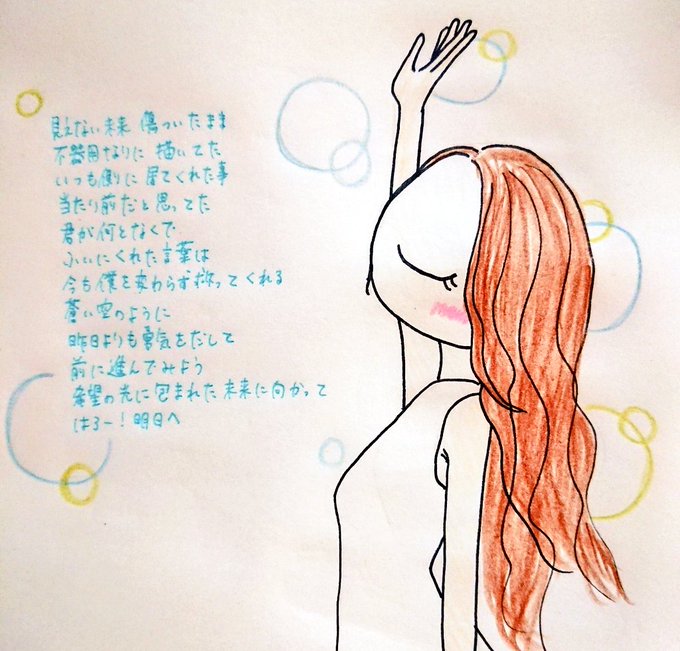 見えない未来 傷ついたまま
不器用なりに 描いてた
いつも側に 居てくれた事
当たり前だと思ってた
君が何となくで
ふいにくれた言葉は
今も僕を変わらず救ってくれる
蒼い空のように
昨日よりも勇気をだして
前に進んでみよう
希望の光に包まれた未来に向かって
はろー！明日へ